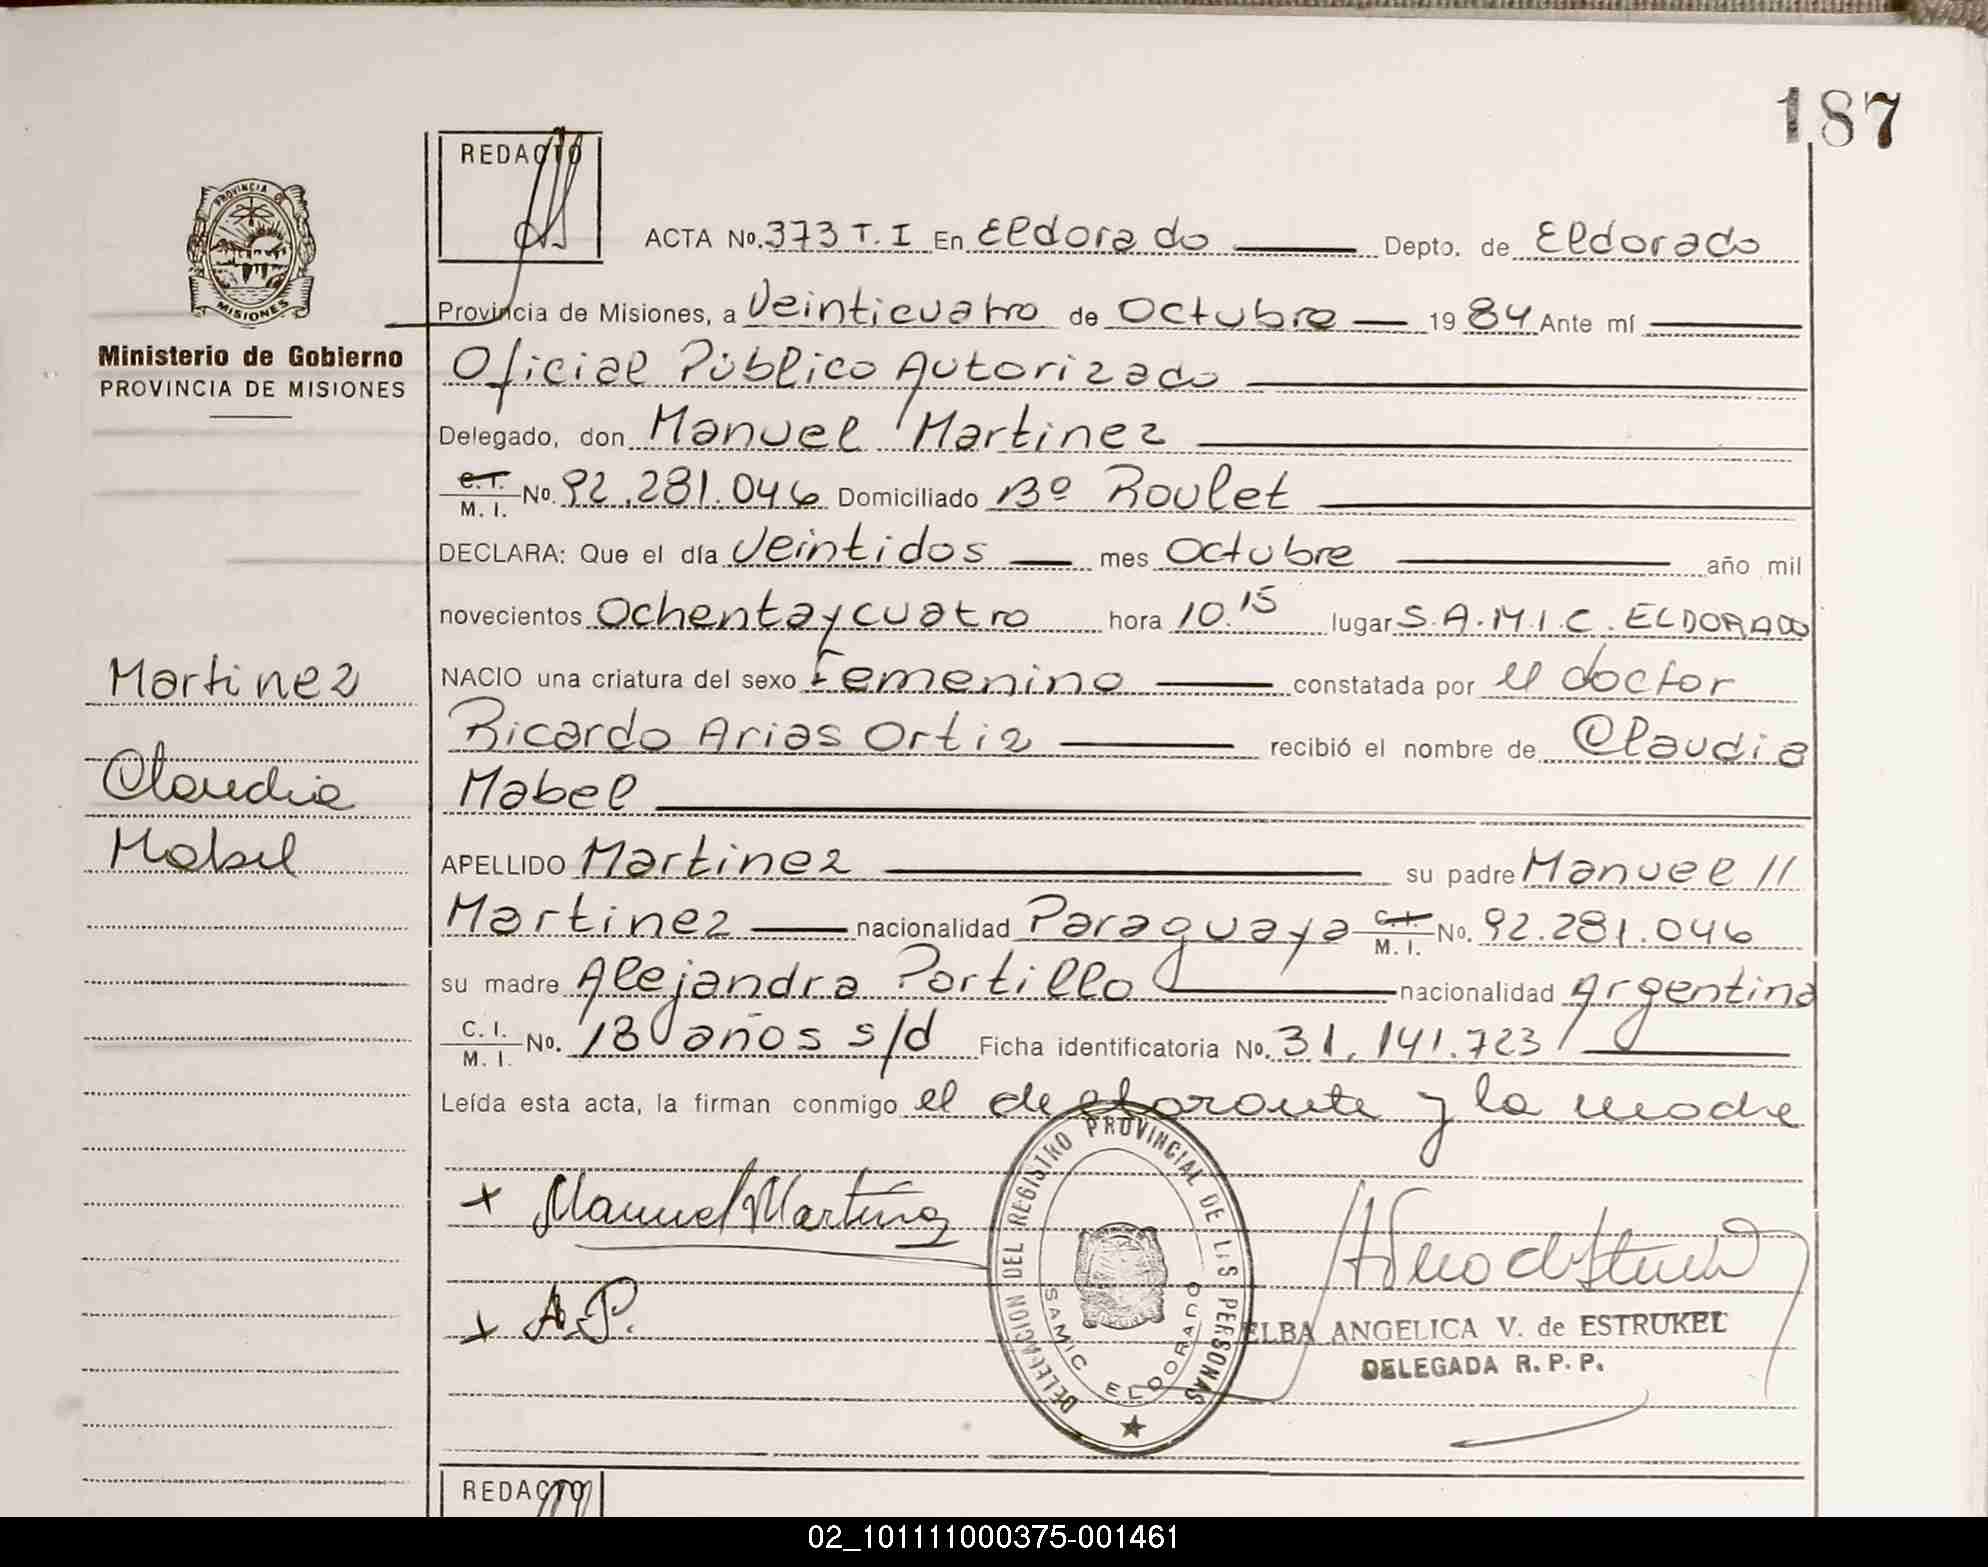 187
REDACTO
PROVINCIA DE
MISIONES
Ministerio de Gobierno
PROVINCIA DE MISIONES
Martinez
Claudia
Mabel
ACTA No. 373 T. I En Eldorado Depto. de Eldorado
Provincia de Misiones, a Veinticuatro de Octubre 19 84 Ante mí
Oficial Público Autorizado
Delegado, don Manuel Martinez
C.I. M. I. No. 92.281.046 Domiciliado Bº Roulet
DECLARA: Que el día Veintidos mes Octubre año mil
novecientos Ochenta y cuatro hora 10.15 lugar S.A.M.I.C. ELDORADO
NACIO una criatura del sexo Femenino constatada por el doctor
Ricardo Arias Ortiz recibió el nombre de Claudia
Mabel
APELLIDO Martinez su padre Manuel //
Martinez nacionalidad Paraguaya C.I. M. I. No. 92.281.046
su madre Alejandra Portillo nacionalidad Argentina
C. I. M. I. No. 18 años s/d Ficha identificatoria No. 31.141.723
Leída esta acta, la firman conmigo el declarante y la madre
x Manuel Martínez
x A.P.
DELEGACION DEL REGISTRO PROVINCIAL DE LAS PERSONAS
SAMIC ELDORADO
ELBA ANGELICA V. de ESTRUKEL
DELEGADA R. P. P.
REDACTO
02_101111000375-001461